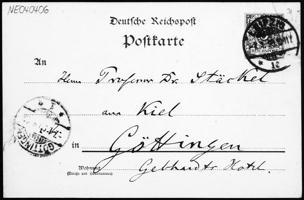 NE040406
Deutsche Reichspost
Postkarte
LEIPZIG
An
Herrn Professor Dr. Stäckel
aus Kiel
in Göttingen
GÖTTINGEN
Wohnung
Gebhardts Hotel.
(Straße und Hausnummer)